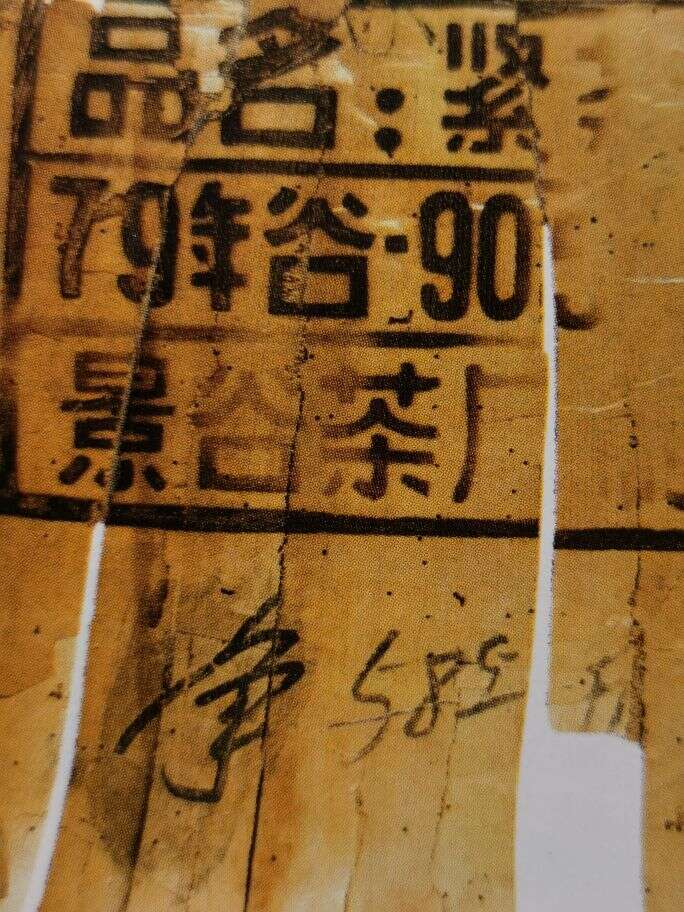 品名:紧
79 谷-90
景谷茶厂
净 585